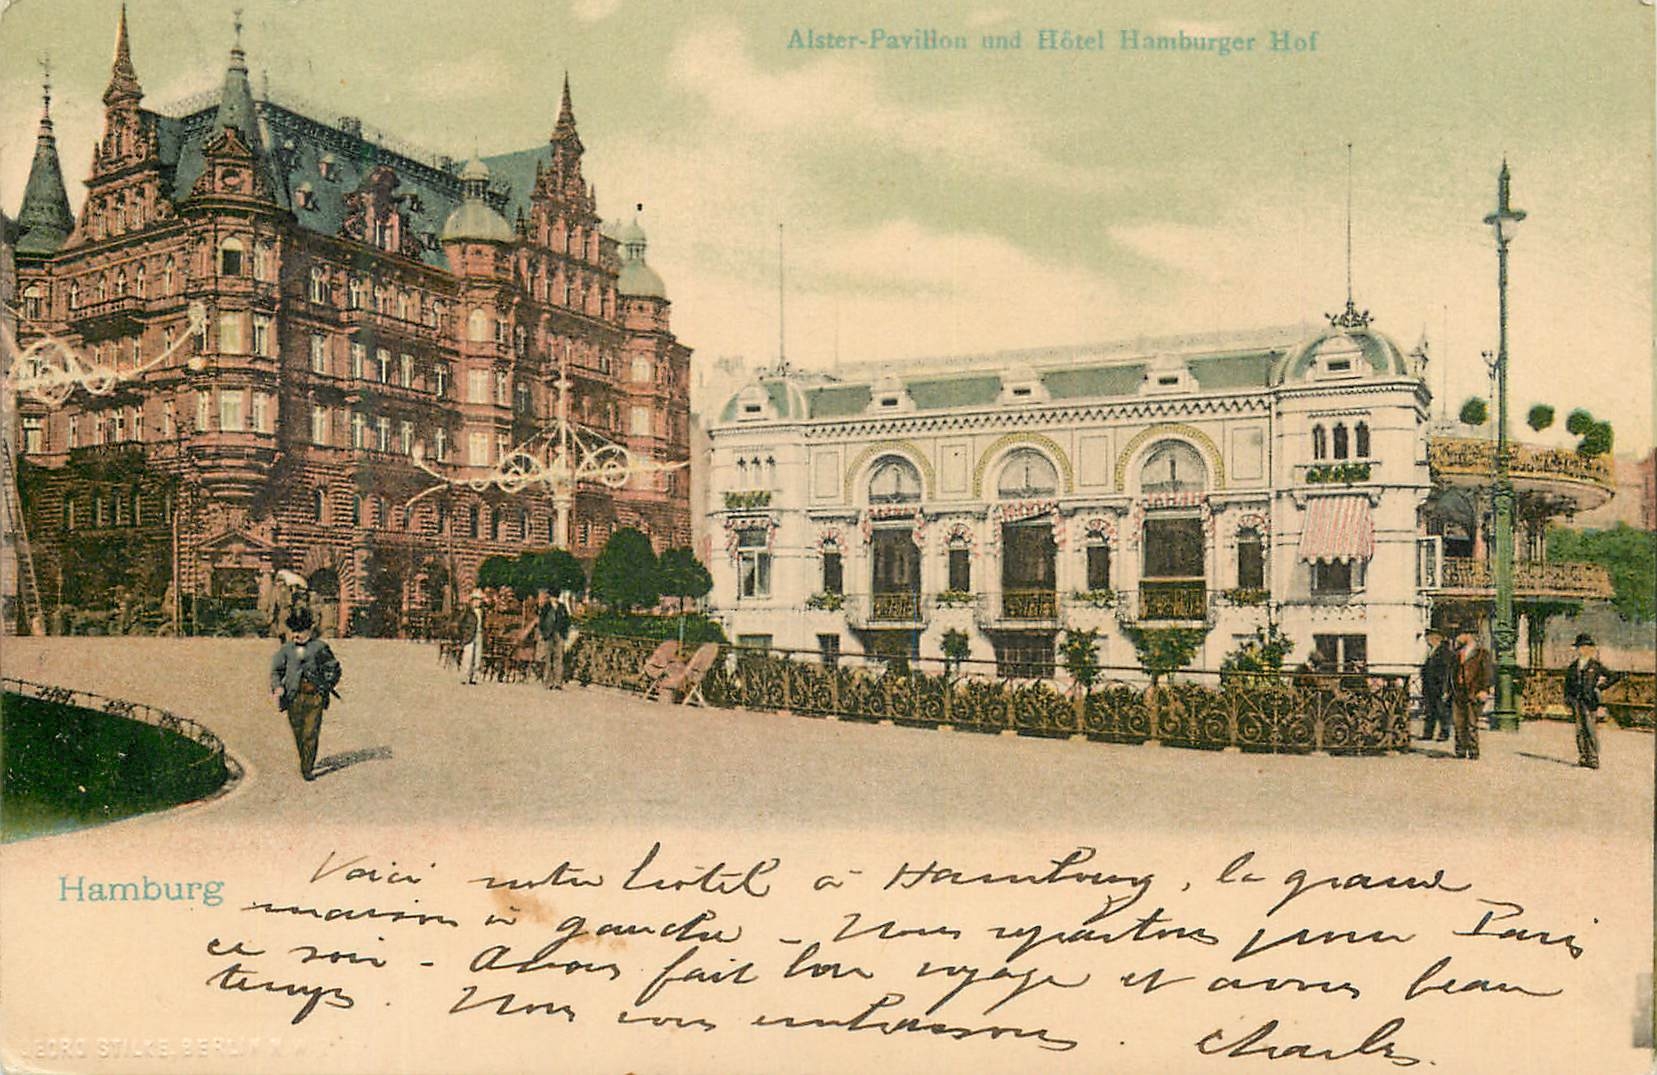 Alster-Pavillon und Hôtel Hamburger Hof
Hamburg
Voici notre hôtel à Hambourg, la grande
maison à gauche - Nous repartons pour Paris
ce soir - Avons fait bon voyage et avons beau
temps. Nous vous embrassons. Charles.
GEORG STILKE, BERLIN N.W.